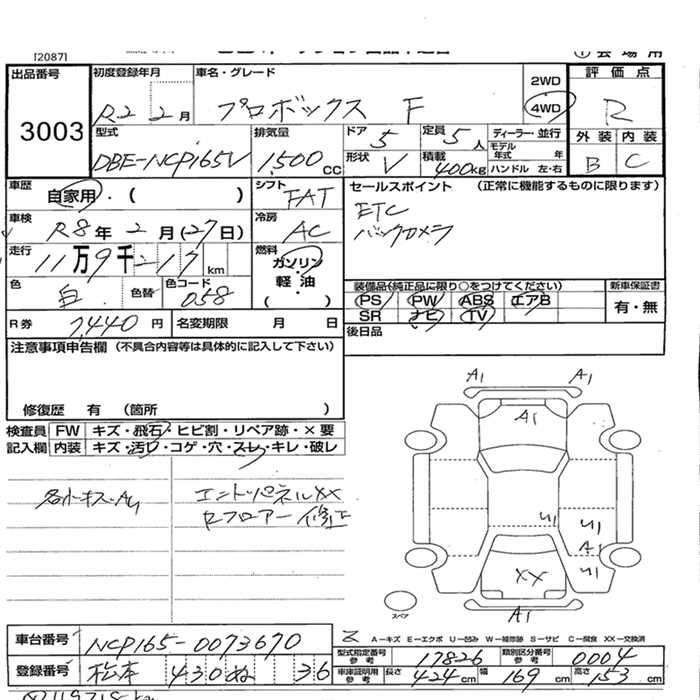 [2087]
出品番号
3003
初度登録年月
R2 2月
車名・グレード
プロボックス F
2WD
4WD
評価点
R
外装 内装
B C
型式
DBE-NCP165V
排気量
1,500 CC
ドア 5
定員 5人
形状 V
積載 400kg
ディーラー・並行
モデル年式 年
ハンドル 左・右
車歴
自家用・( )
シフト
FAT
車検
R8年2月(27日)
冷房
AC
走行
11万9千217km
燃料
ガソリン・軽油
( )
色
白
色替
色コード
058
R券
7,440円
名変期限 月 日
セールスポイント (正常に機能するものに限ります)
ETC
バックカメラ
装備品(純正品に限り○をつけてください)
PS PW ABS エアB
SR ナビ TV
新車保証書
有・無
後日品
注意事項申告欄(不具合内容等は具体的に記入して下さい)
修復歴 有 (箇所 )
検査員記入欄
FW キズ・飛石・ヒビ割・リペア跡・×要
内装 キズ・汚れ・コゲ・穴・スレ・キレ・破レ
各小キズ・A4
エンドパネルXX
Rフロアー修正
A1 A1
A1
U1 U1
A1
U1
XX
A1
スペア
A-キズ E-エクボ U-凹み W-補修跡 S-サビ C-腐食 XX-交換済
車台番号
NCP165-0073670
登録番号
松本 430 ぬ 36
型式指定番号 参考
17826
類別区分番号 参考
0004
車庫証明用 参考
長さ 424cm 幅 169cm 高さ 153cm